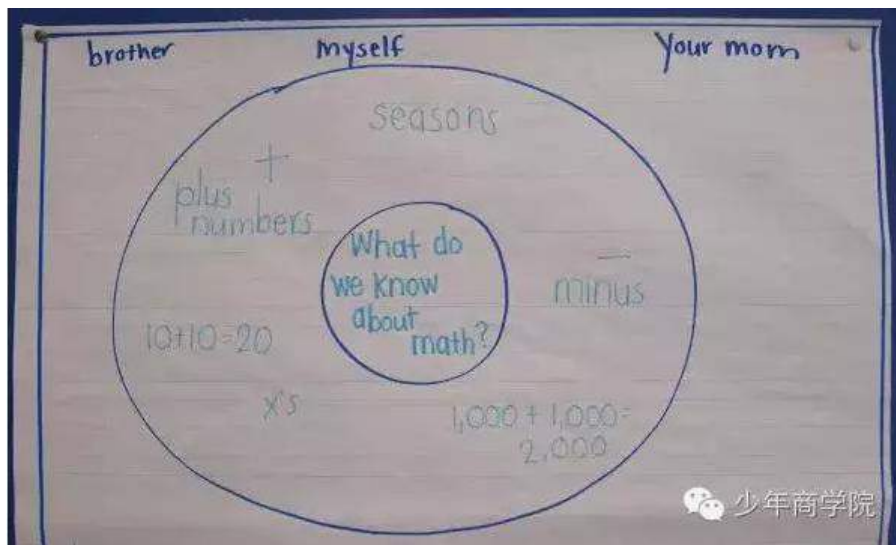 brother myself Your mom
seasons
+
plus
numbers
What do
we know
about
math?
−
minus
10+10=20
x's
1,000 + 1,000=
2,000
少年商学院